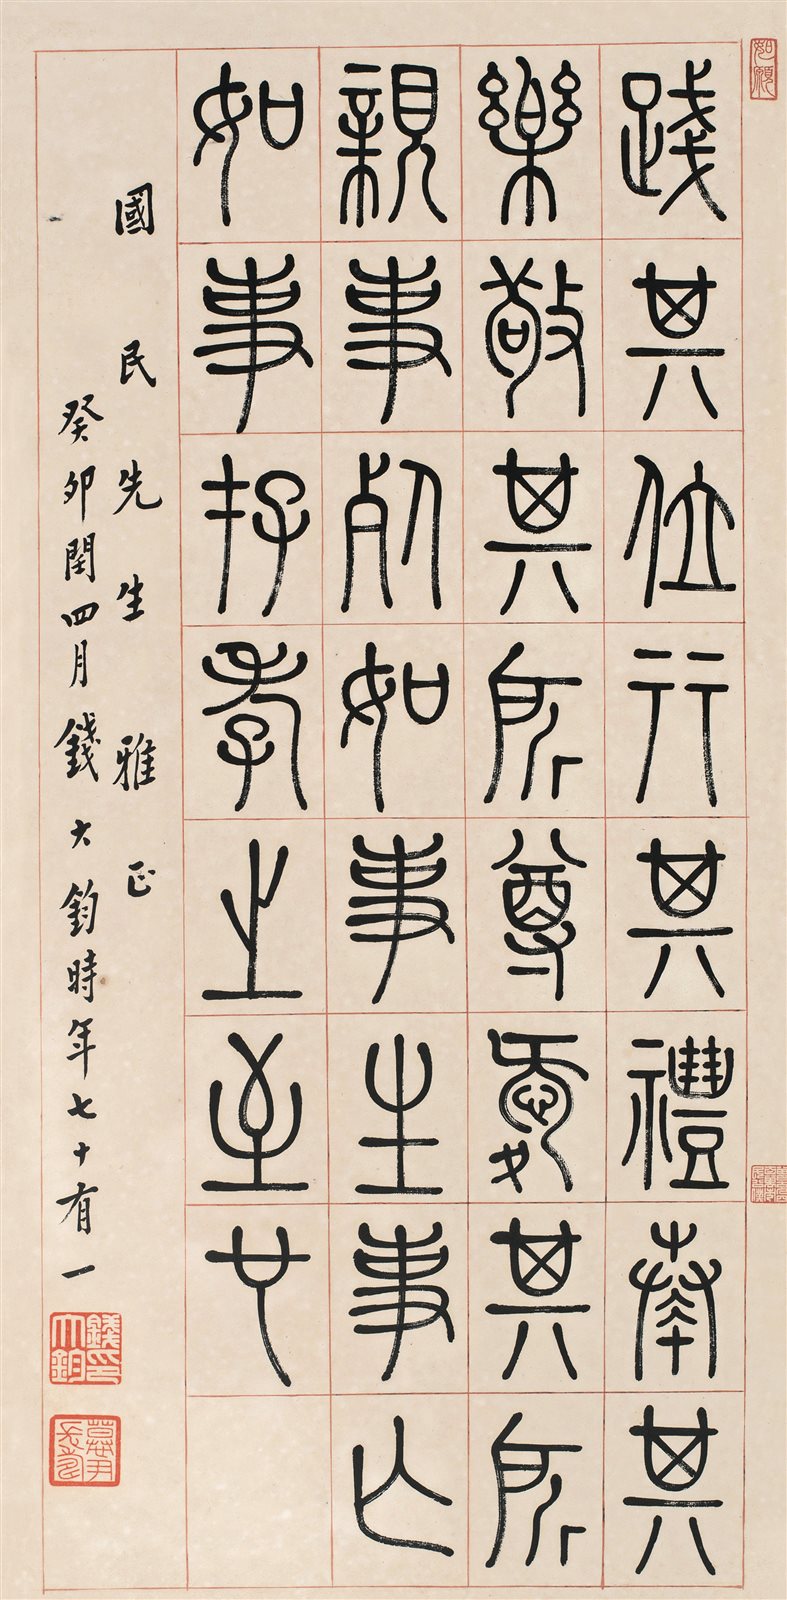 如願
踐其位行其禮奏其
樂敬其所尊愛其所
親事死如事生事亡
如事存孝之至也
國民先生雅正
癸卯閏四月錢大鈞時年七十有一
錢大鈞印
慕尹